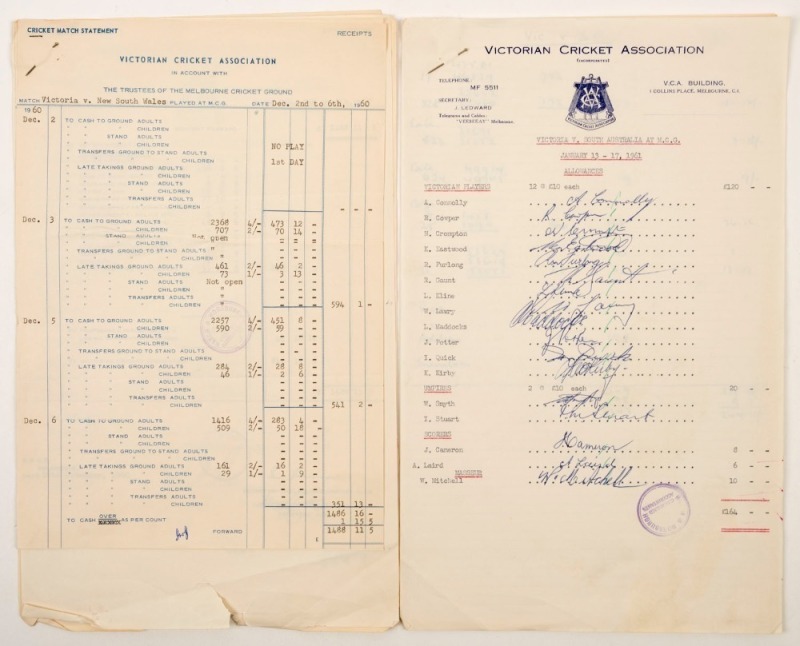 CRICKET MATCH STATEMENT RECEIPTS
VICTORIAN CRICKET ASSOCIATION
IN ACCOUNT WITH
THE TRUSTEES OF THE MELBOURNE CRICKET GROUND
MATCH Victoria v. New South Wales PLAYED AT M.C.G. DATE Dec. 2nd to 6th, 1960
1960
Dec. 2 TO CASH TO GROUND ADULTS
" " " CHILDREN
" " STAND ADULTS
" " " CHILDREN NO PLAY
TRANSFERS GROUND TO STAND ADULTS
" " " CHILDREN 1st DAY
LATE TAKINGS GROUND ADULTS
" " " CHILDREN
" " STAND ADULTS
" " " CHILDREN
" " TRANSFERS ADULTS
" " " CHILDREN - - -
Dec. 3 TO CASH TO GROUND ADULTS 2368 4/- 473 12 -
" " " CHILDREN 707 2/- 70 14 -
" " STAND ADULTS Not open - - -
" " " CHILDREN " - - -
TRANSFERS GROUND TO STAND ADULTS " - - -
" " " CHILDREN " - - -
LATE TAKINGS GROUND ADULTS 461 2/- 46 2 -
" " " CHILDREN 73 1/- 3 13 -
" " STAND ADULTS Not open - - -
" " " CHILDREN " - - -
" " TRANSFERS ADULTS " - - -
" " " CHILDREN " - - - 594 1 -
Dec. 5 TO CASH TO GROUND ADULTS 2257 4/- 451 8 -
" " " CHILDREN 590 2/- 59 - -
" " STAND ADULTS - - -
" " " CHILDREN - - -
TRANSFERS GROUND TO STAND ADULTS - - -
" " " CHILDREN - - -
LATE TAKINGS GROUND ADULTS 284 2/- 28 8 -
" " " CHILDREN 46 1/- 2 6 -
" " STAND ADULTS - - -
" " " CHILDREN - - -
" " TRANSFERS ADULTS - - -
" " " CHILDREN - - - 541 2 -
Dec. 6 TO CASH TO GROUND ADULTS 1416 4/- 283 4 -
" " " CHILDREN 509 2/- 50 18 -
" " STAND ADULTS - - -
" " " CHILDREN - - -
TRANSFERS GROUND TO STAND ADULTS - - -
" " " CHILDREN - - -
LATE TAKINGS GROUND ADULTS 161 2/- 16 2 -
" " " CHILDREN 29 1/- 1 9 -
" " STAND ADULTS - - -
" " " CHILDREN - - -
" " TRANSFERS ADULTS - - -
" " " CHILDREN - - - 351 13 -
1486 16 -
TO CASH OVER AS PER COUNT 1 15 5
FORWARD 1488 11 5
VICTORIAN CRICKET ASSOCIATION
(INCORPORATED)
TELEPHONE: MF 5511
SECRETARY: J. LEDWARD
Telegrams and Cables: "VICRICKET" Melbourne.
V.C.A. BUILDING,
1 COLLINS PLACE, MELBOURNE, C.1.
VICTORIAN CRICKET ASSOCIATION
VICTORIA V. SOUTH AUSTRALIA AT M.C.G.
JANUARY 13 - 17, 1961
ALLOWANCES
VICTORIAN PLAYERS 12 @ £10 each £120 - -
A. Connolly A Connolly
R. Cowper R Cowper
N. Crompton N Crompton
K. Eastwood Ken Eastwood
R. Furlong Ron Furlong
R. Gaunt R Gaunt
L. Kline L Kline
W. Lawry W Lawry
L. Maddocks L Maddocks
J. Potter J Potter
I. Quick Ian Quick
K. Kirby K Kirby
UMPIRES 2 @ £10 each 20 - -
W. Smyth
T. Stuart
SCORERS
J. Cameron J Cameron 8 - -
A. Laird A Laird 6 - -
MASSEUR
W. Mitchell W. Mitchell 10 - -
£164 - -